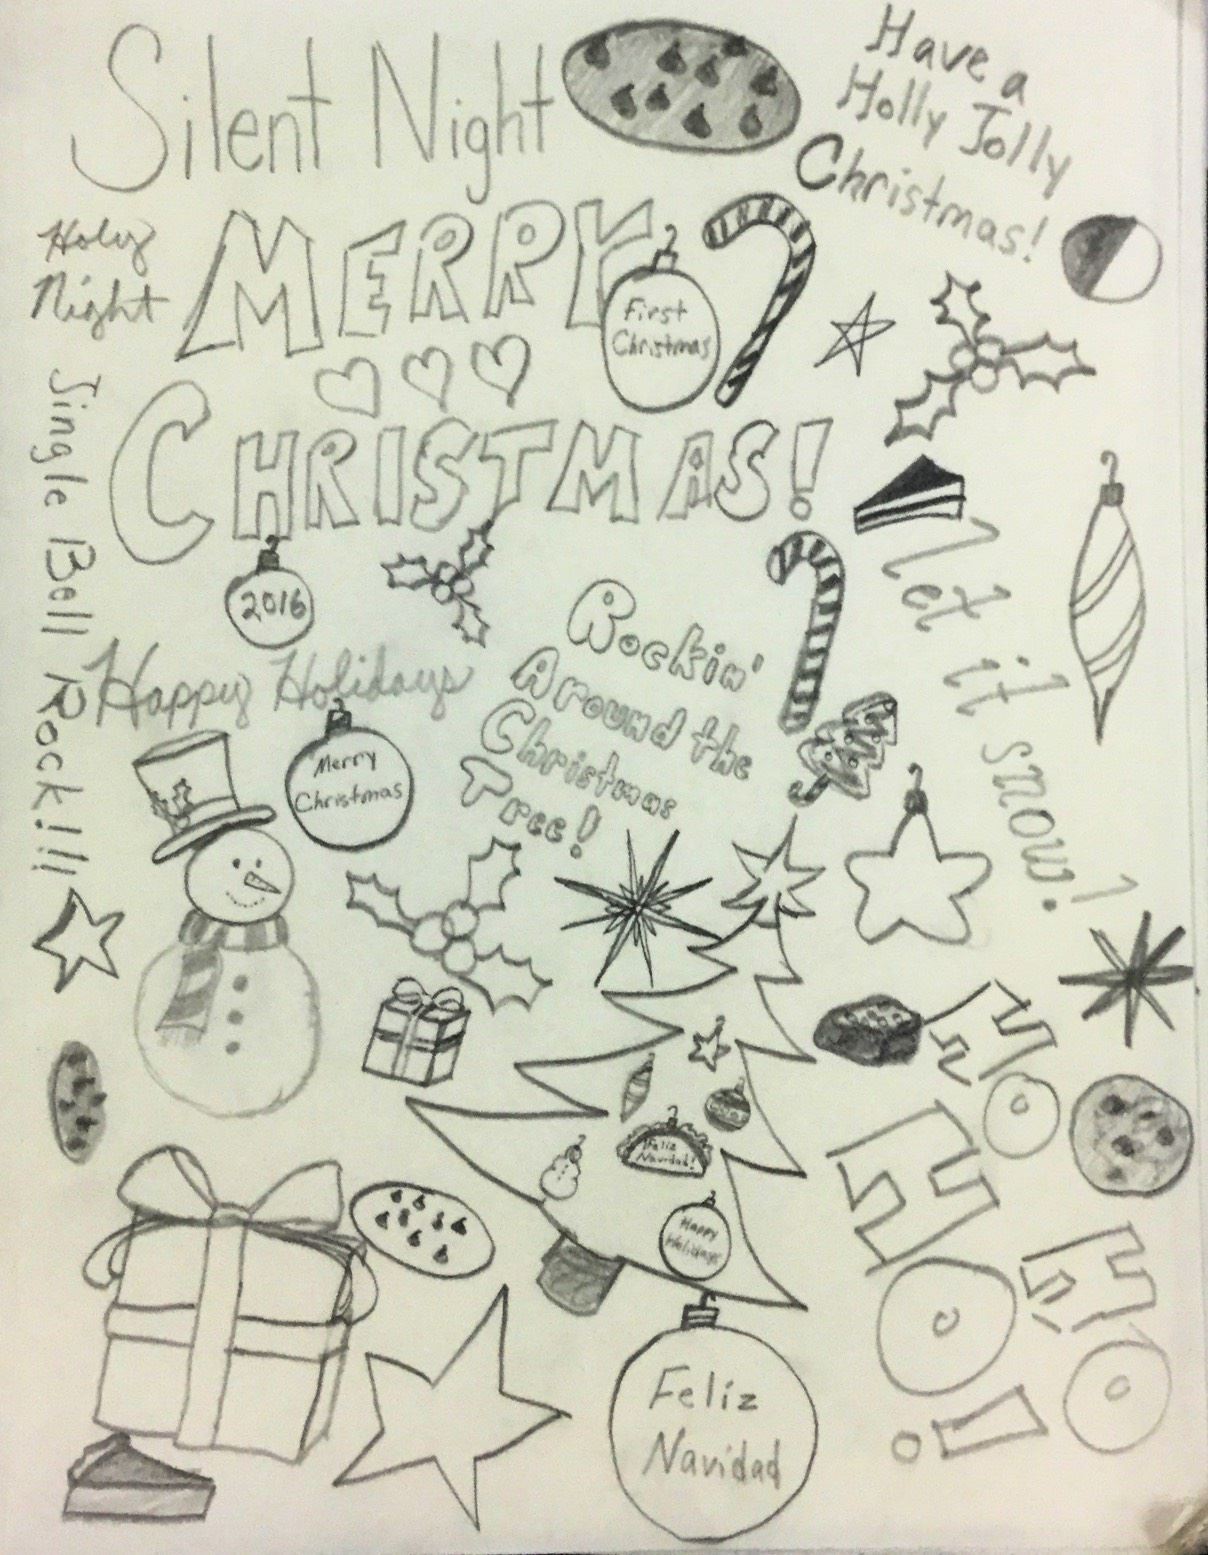 Silent Night
Have a
Holly Jolly
Christmas!
Holy
Night
MERRY
First
Christmas
CHRISTMAS!
Jingle Bell Rock!!!
2016
Let it snow!
Happy Holidays
Rockin'
Around the
Christmas
Tree!
Merry
Christmas
HO
HO
HO!
Feliz
Navidad!
Happy
Holidays
Feliz
Navidad